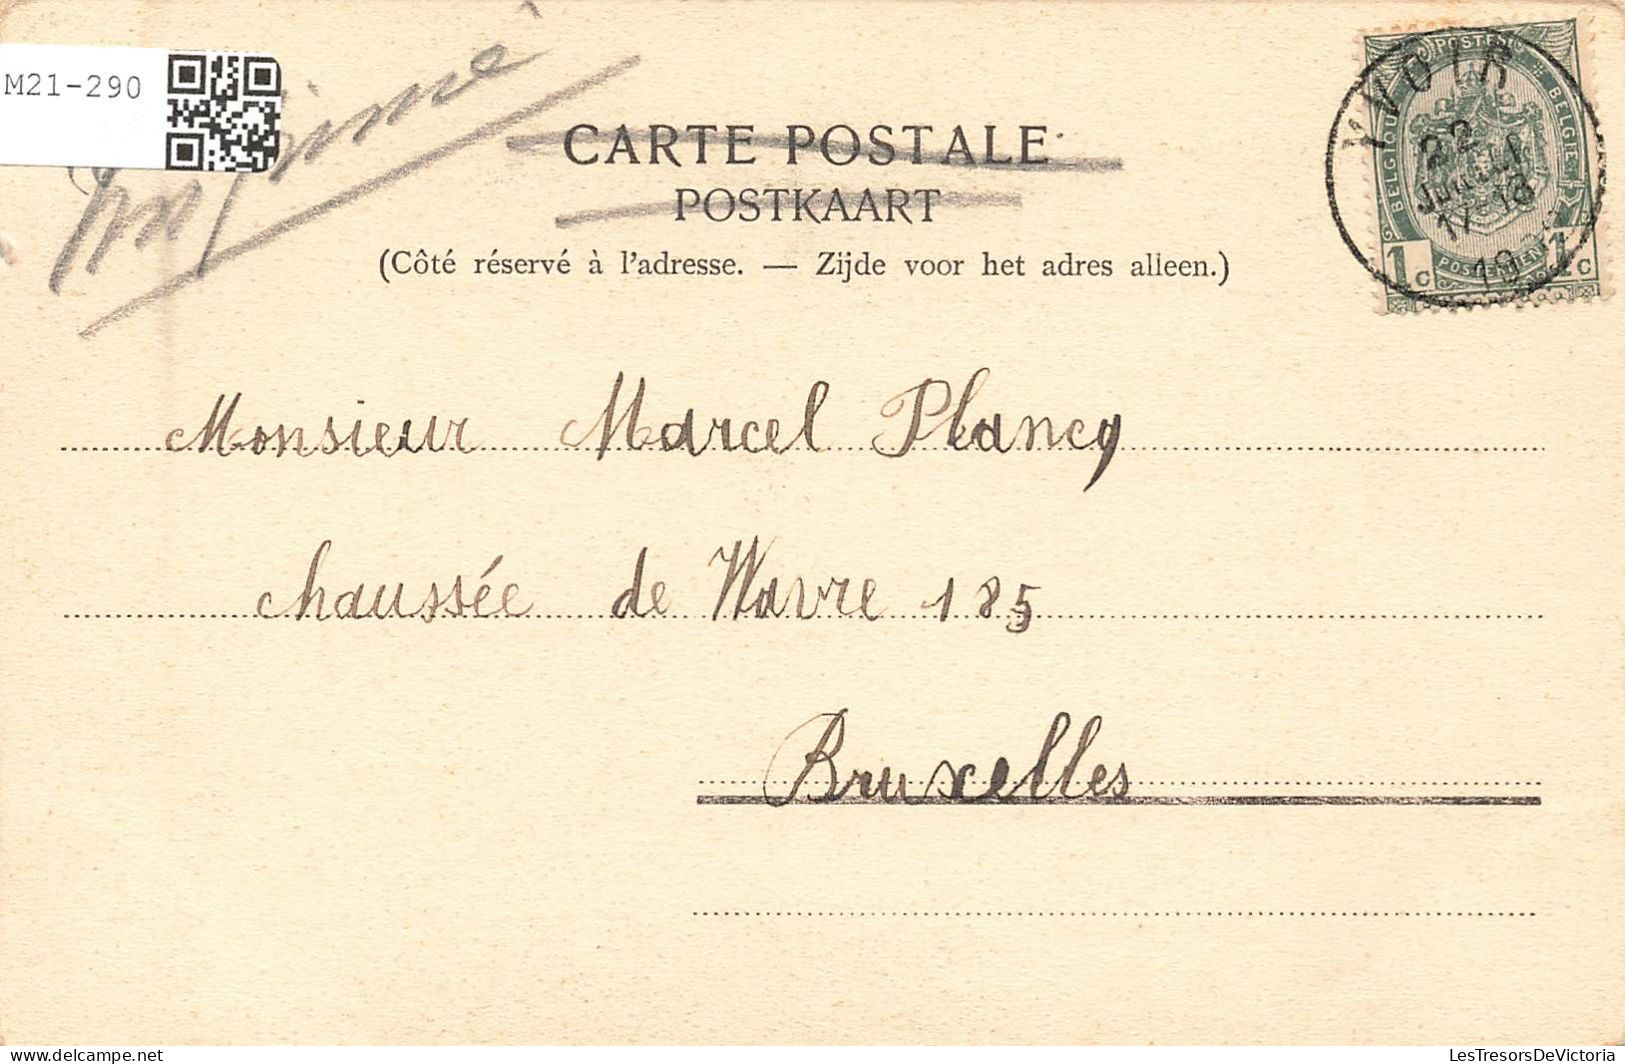 M21-290
Imprimé
CARTE POSTALE
POSTKAART
(Côté réservé à l'adresse. — Zijde voor het adres alleen.)
POSTES
BELGIQUE
BELGIE
YVOIR
22
JUIL
17-18
19
1c
POSTERIJEN
1c
Monsieur Marcel Plancq
chaussée de Wavre 185
Bruxelles
LesTresorsDeVictoria